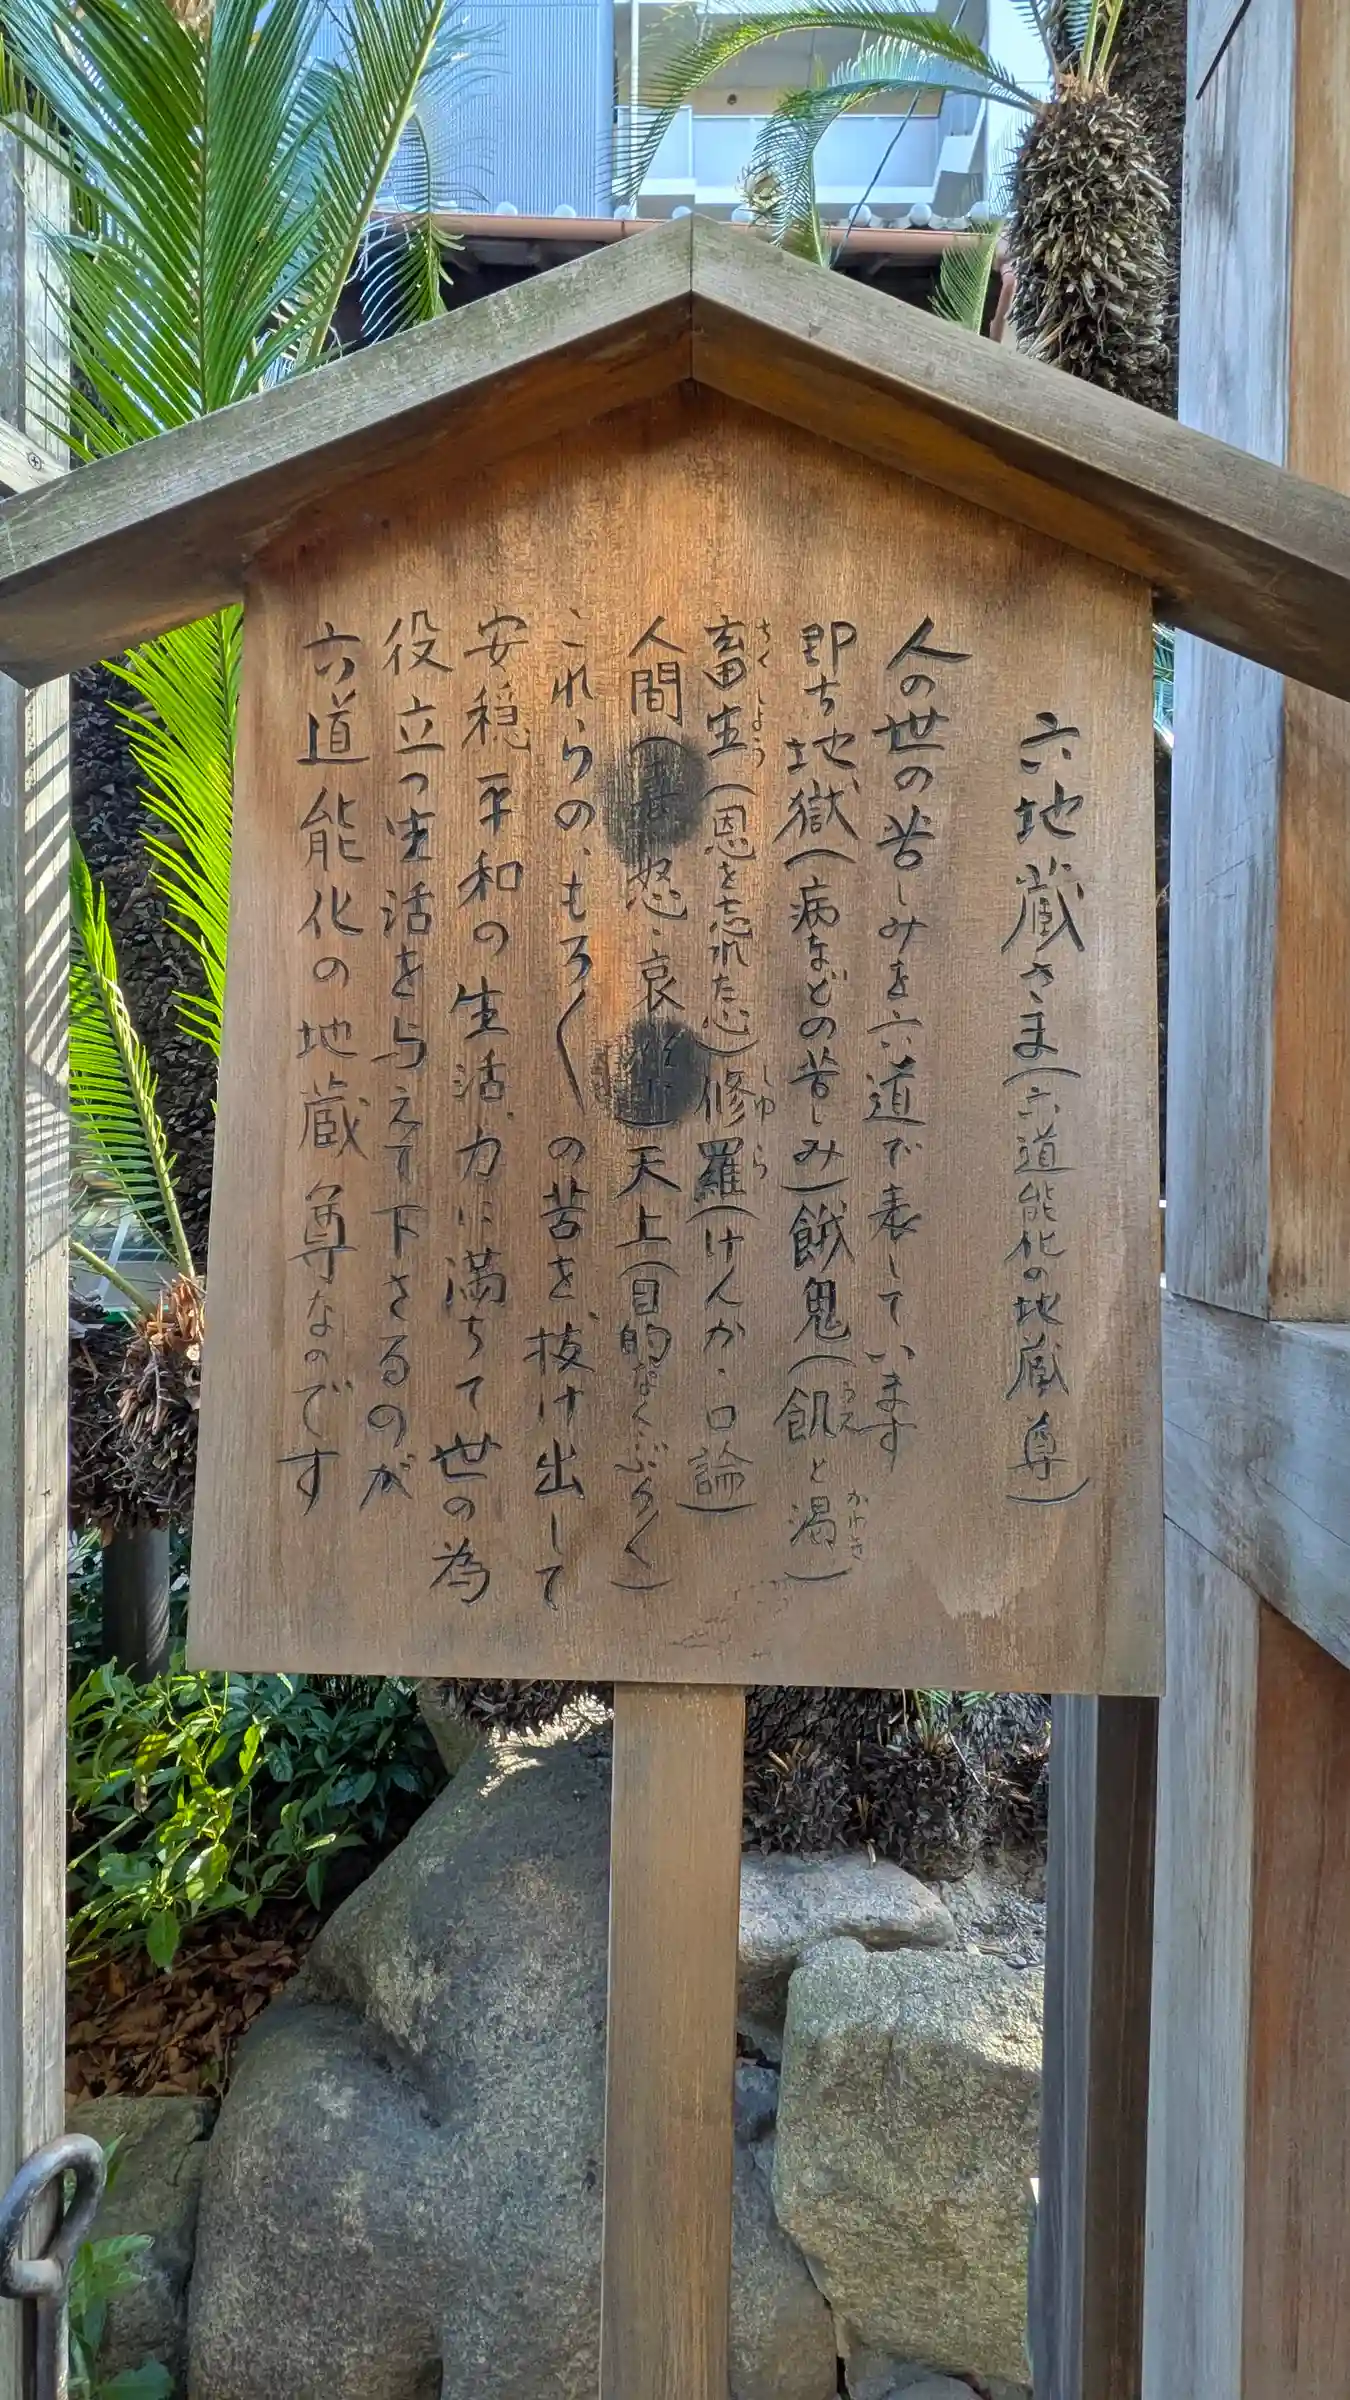 六地蔵さま(六道能化の地蔵尊)
人の世の苦しみを六道で表しています
即ち地獄(病などの苦しみ)餓鬼(飢と渇)
うえ
かわき
畜生(恩を忘れた心)修羅(けんか・口論)
ちくしょう
しゆら
人間( 怒、哀 )天上(目的なくぶらく)
これらの、もろ〱の苦を、抜け出して
安穏、平和の生活、力に満ちて世の為
役立つ生活を与えて下さるのが
六道能化の地蔵尊なのです